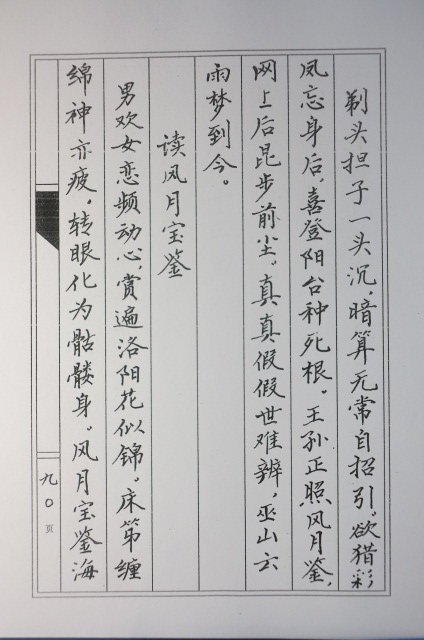 剃头担子一头沉，暗算无常自招引。欲猎彩
凤忘身后，喜登阳台种死根。王孙正照风月鉴，
网上后昆步前尘。真真假假世难辨，巫山云
雨梦到今。
读风月宝鉴
男欢女恋频动心，赏遍洛阳花似锦。床笫缠
绵神亦疲，转眼化为骷髅身。风月宝鉴海
九〇页